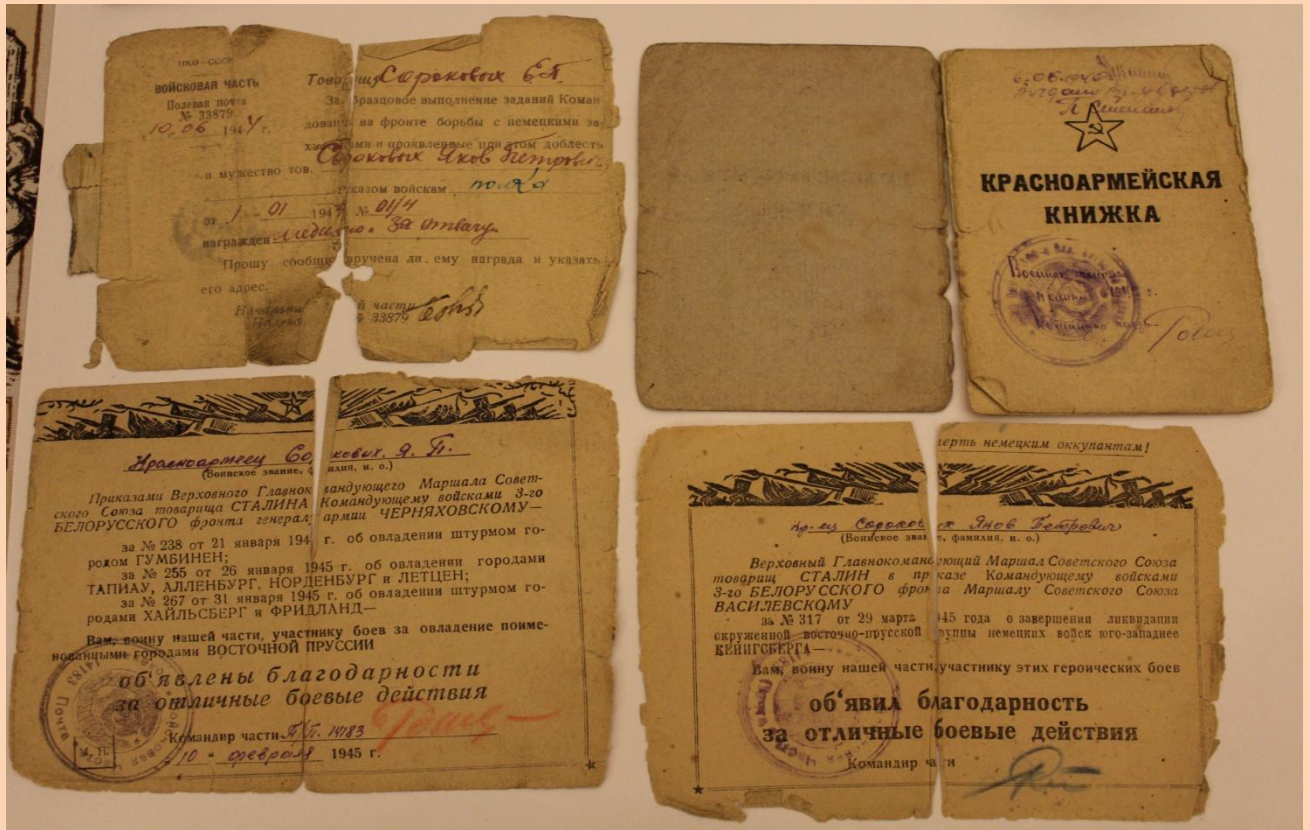 НКО СССР
ВОЙСКОВАЯ ЧАСТЬ
Полевая почта
№ 33879
10.06 1944 г.
Сороковых Е.П.
За образцовое выполнение заданий Коман
дования на фронте борьбы с немецкими за
и проявленные при этом доблесть
и мужество тов. Сороковых Яков Петрович
войскам полка
от 1 - 01 194 № 01/4
награжден Медалью "За отвагу"
Прошу сообщи вручена ли ему награда и указать
его адрес.
й части
33879
КРАСНОАРМЕЙСКАЯ
КНИЖКА
Красноармеец Сороковых. Я. П.
(Воинское звание, ф милия, и. о.)
Приказами Верховного Главнок мандующего Маршала Совет-
ского Союза товарища СТАЛИНА Командующему войсками 3-го
БЕЛОРУССКОГО фронта генерал армии ЧЕРНЯХОВСКОМУ—
за № 238 от 21 января 194 г. об овладении штурмом го-
родом ГУМБИНЕН;
за № 255 от 26 января 1945 г. об овладении городами
ТАПИАУ, АЛЛЕНБУРГ, НОРДЕНБУРГ и ЛЕТЦЕН;
за № 267 от 31 января 1945 г. об овладении штурмом го-
родами ХАЙЛЬСБЕРГ и ФРИДЛАНД—
Вам, воину нашей части, участнику боев за овладение поиме-
нованными городами ВОСТОЧНОЙ ПРУССИИ
об'явлены благодарности
за отличные боевые действия
Командир части П/П. 14183
М. П.
"10" февраля 1945 г.
ерть немецким оккупантам!
кр-ец Сороков х Яков Петрович
(Воинское зва е, фамилия, и. о.)
Верховный Главнокоманд ующий Маршал Советского Союза
товарищ СТАЛИН в приказе Командующему войсками
3-го БЕЛОРУССКОГО фронта Маршалу Советского Союза
ВАСИЛЕВСКОМУ
за № 317 от 29 марта 945 года о завершении ликвидации
окруженной восточно-прусской группы немецких войск юго-западнее
КЕНИГСБЕРГА—
Вам, воину нашей части, участнику этих героических боев
об'явил благодарность
за отличные боевые действия
Командир части